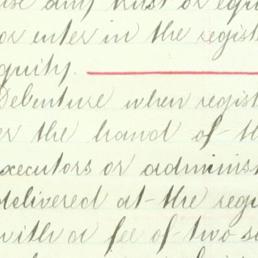 any trust or equi
or enter in the regist
quity.
Debenture when regist
er the hand of th
xecutors or administ
delivered at the regi
with a fee of two s